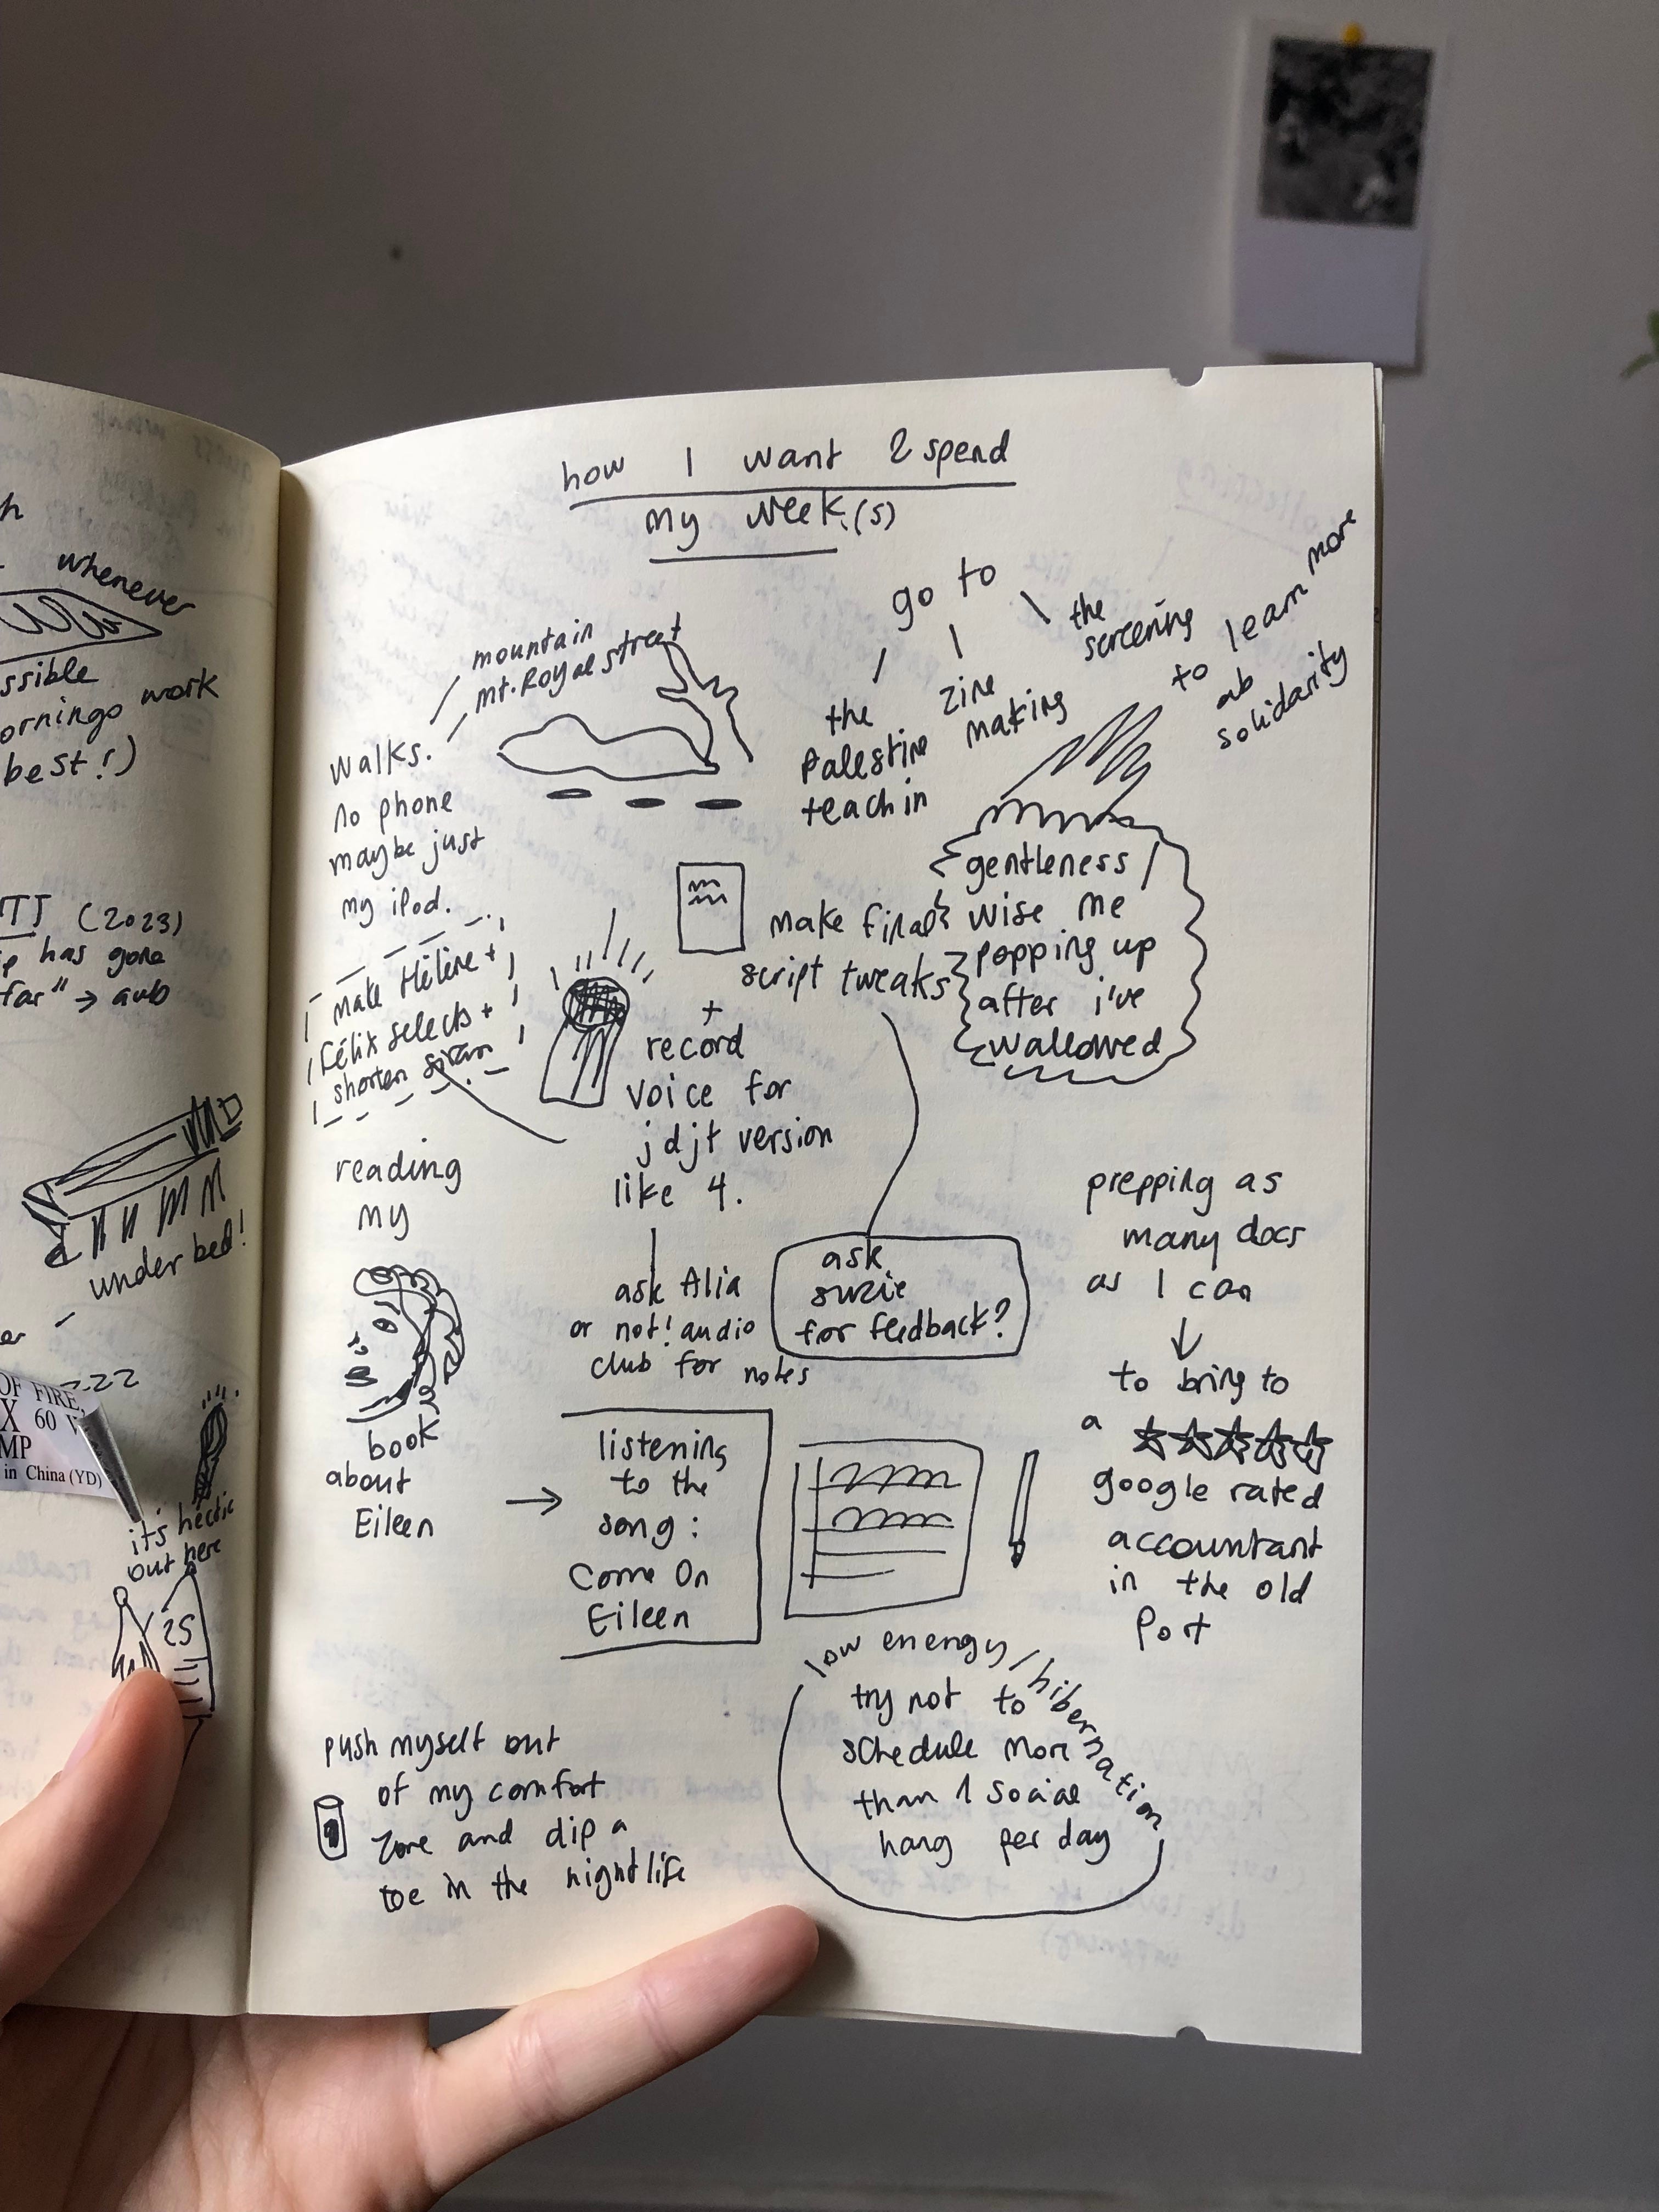 whenever
ssible
ornings work
best!)
(2023)
has gone
far" →
under bed!
OF FIRE,
X 60 W
MP
in China (YD)
it's hectic
out here
25
how I want 2 spend
my week.(s)
mountain
mt. Royal street
walks.
no phone
maybe just
my ipod.
go to
the
Palestine
teach in
zine
making
the
screening
to learn more
ab
solidarity
gentleness /
wise me
popping up
after i've
wallowed
make Hélène +
Félix selects +
shorten
make final
script tweaks
+
record
voice for
jdjt version
like 4.
ask Alia
or not! audio
club for notes
ask
suzie
for feedback?
reading
my
book
about
Eileen
→
listening
to the
song:
Come On
Eileen
prepping as
many docs
as I can
↓
to bring to
a ☆☆☆☆☆
google rated
accountant
in the old
Port
low energy / hibernation
try not to
schedule more
than 1 social
hang per day
push myself out
of my comfort
zone and dip a
toe in the nightlife